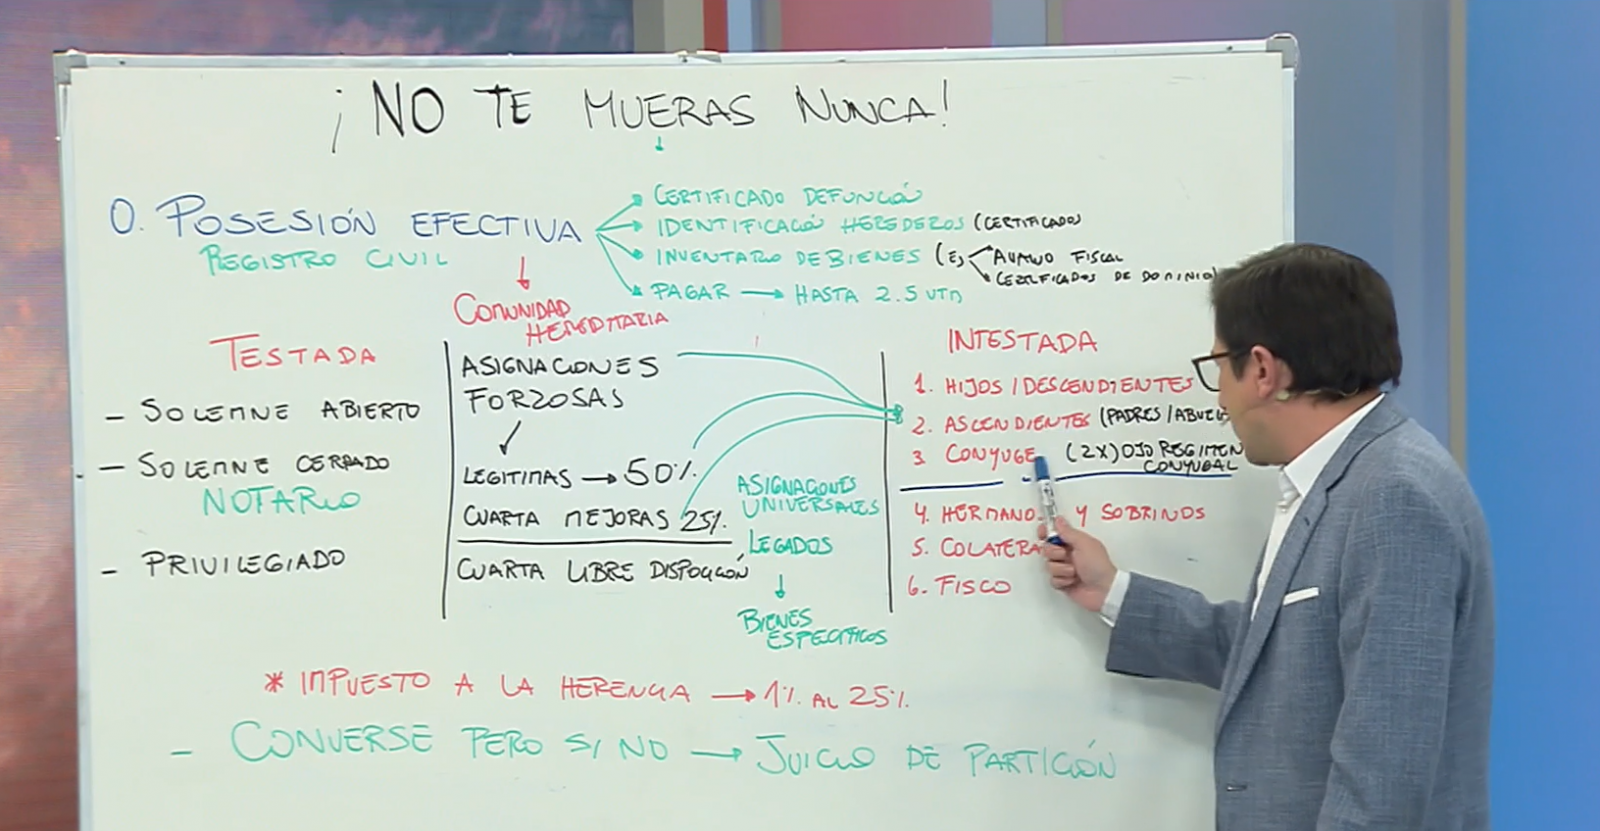 ¡NO TE MUERAS NUNCA!
0. POSESIÓN EFECTIVA
REGISTRO CIVIL
CERTIFICADO DEFUNCIÓN
IDENTIFICACIÓN HEREDEROS (CERTIFICADO)
INVENTARIO DE BIENES
AVALUO FISCAL
CERTIFICADOS DE DOMINIO
PAGAR → HASTA 2.5 UTM
COMUNIDAD
HEREDITARIA
TESTADA
- SOLEMNE ABIERTO
- SOLEMNE CERRADO
NOTARIO
- PRIVILEGIADO
ASIGNACIONES
FORZOSAS
LEGITIMAS → 50%
CUARTA MEJORAS 25%
CUARTA LIBRE DISPOCICIÓN
ASIGNACIONES
UNIVERSALES
LEGADOS
BIENES
ESPECIFICOS
INTESTADA
1. HIJOS / DESCENDIENTES
2. ASCENDIENTES (PADRES / ABUEL
3. CONYUGE (2X) OJO REGIMEN
CONYUGAL
4. HERMANO Y SOBRINOS
5. COLATERA
6. FISCO
* IMPUESTO A LA HERENCIA → 1% AL 25%
- CONVERSE PERO SI NO → JUICIO DE PARTICIÓN